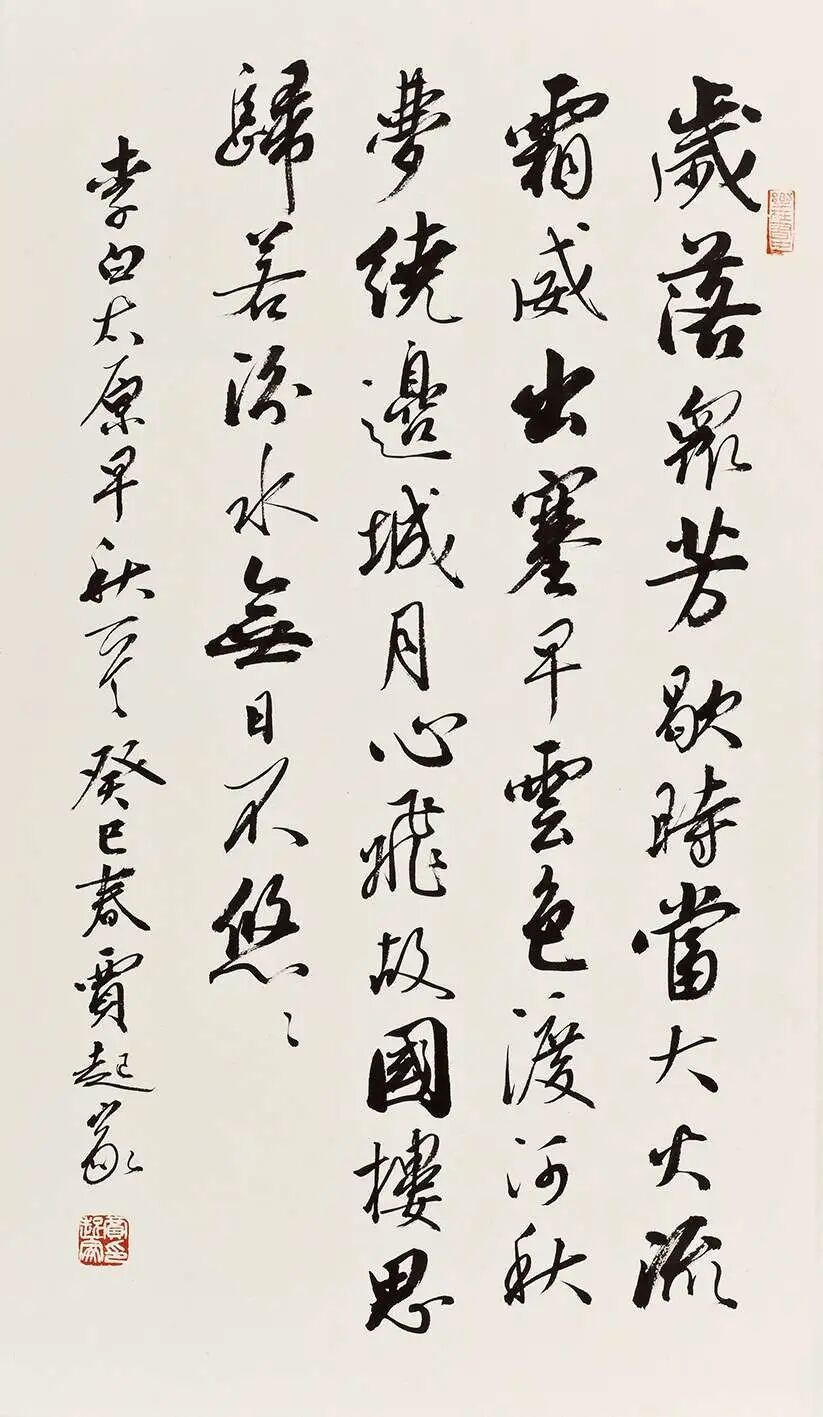 歲落眾芳歇時當大火流
霜威出塞早雲色渡河秋
夢繞邊城月心飛故國樓思
歸若汾水無日不悠〻
李白太原早秋一首癸巳春賈起家